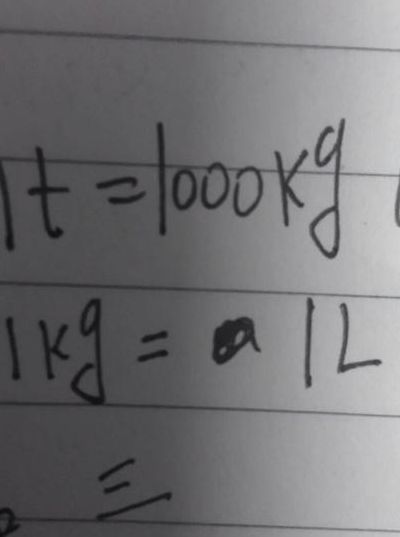 1t = 1000kg
1kg = 1L